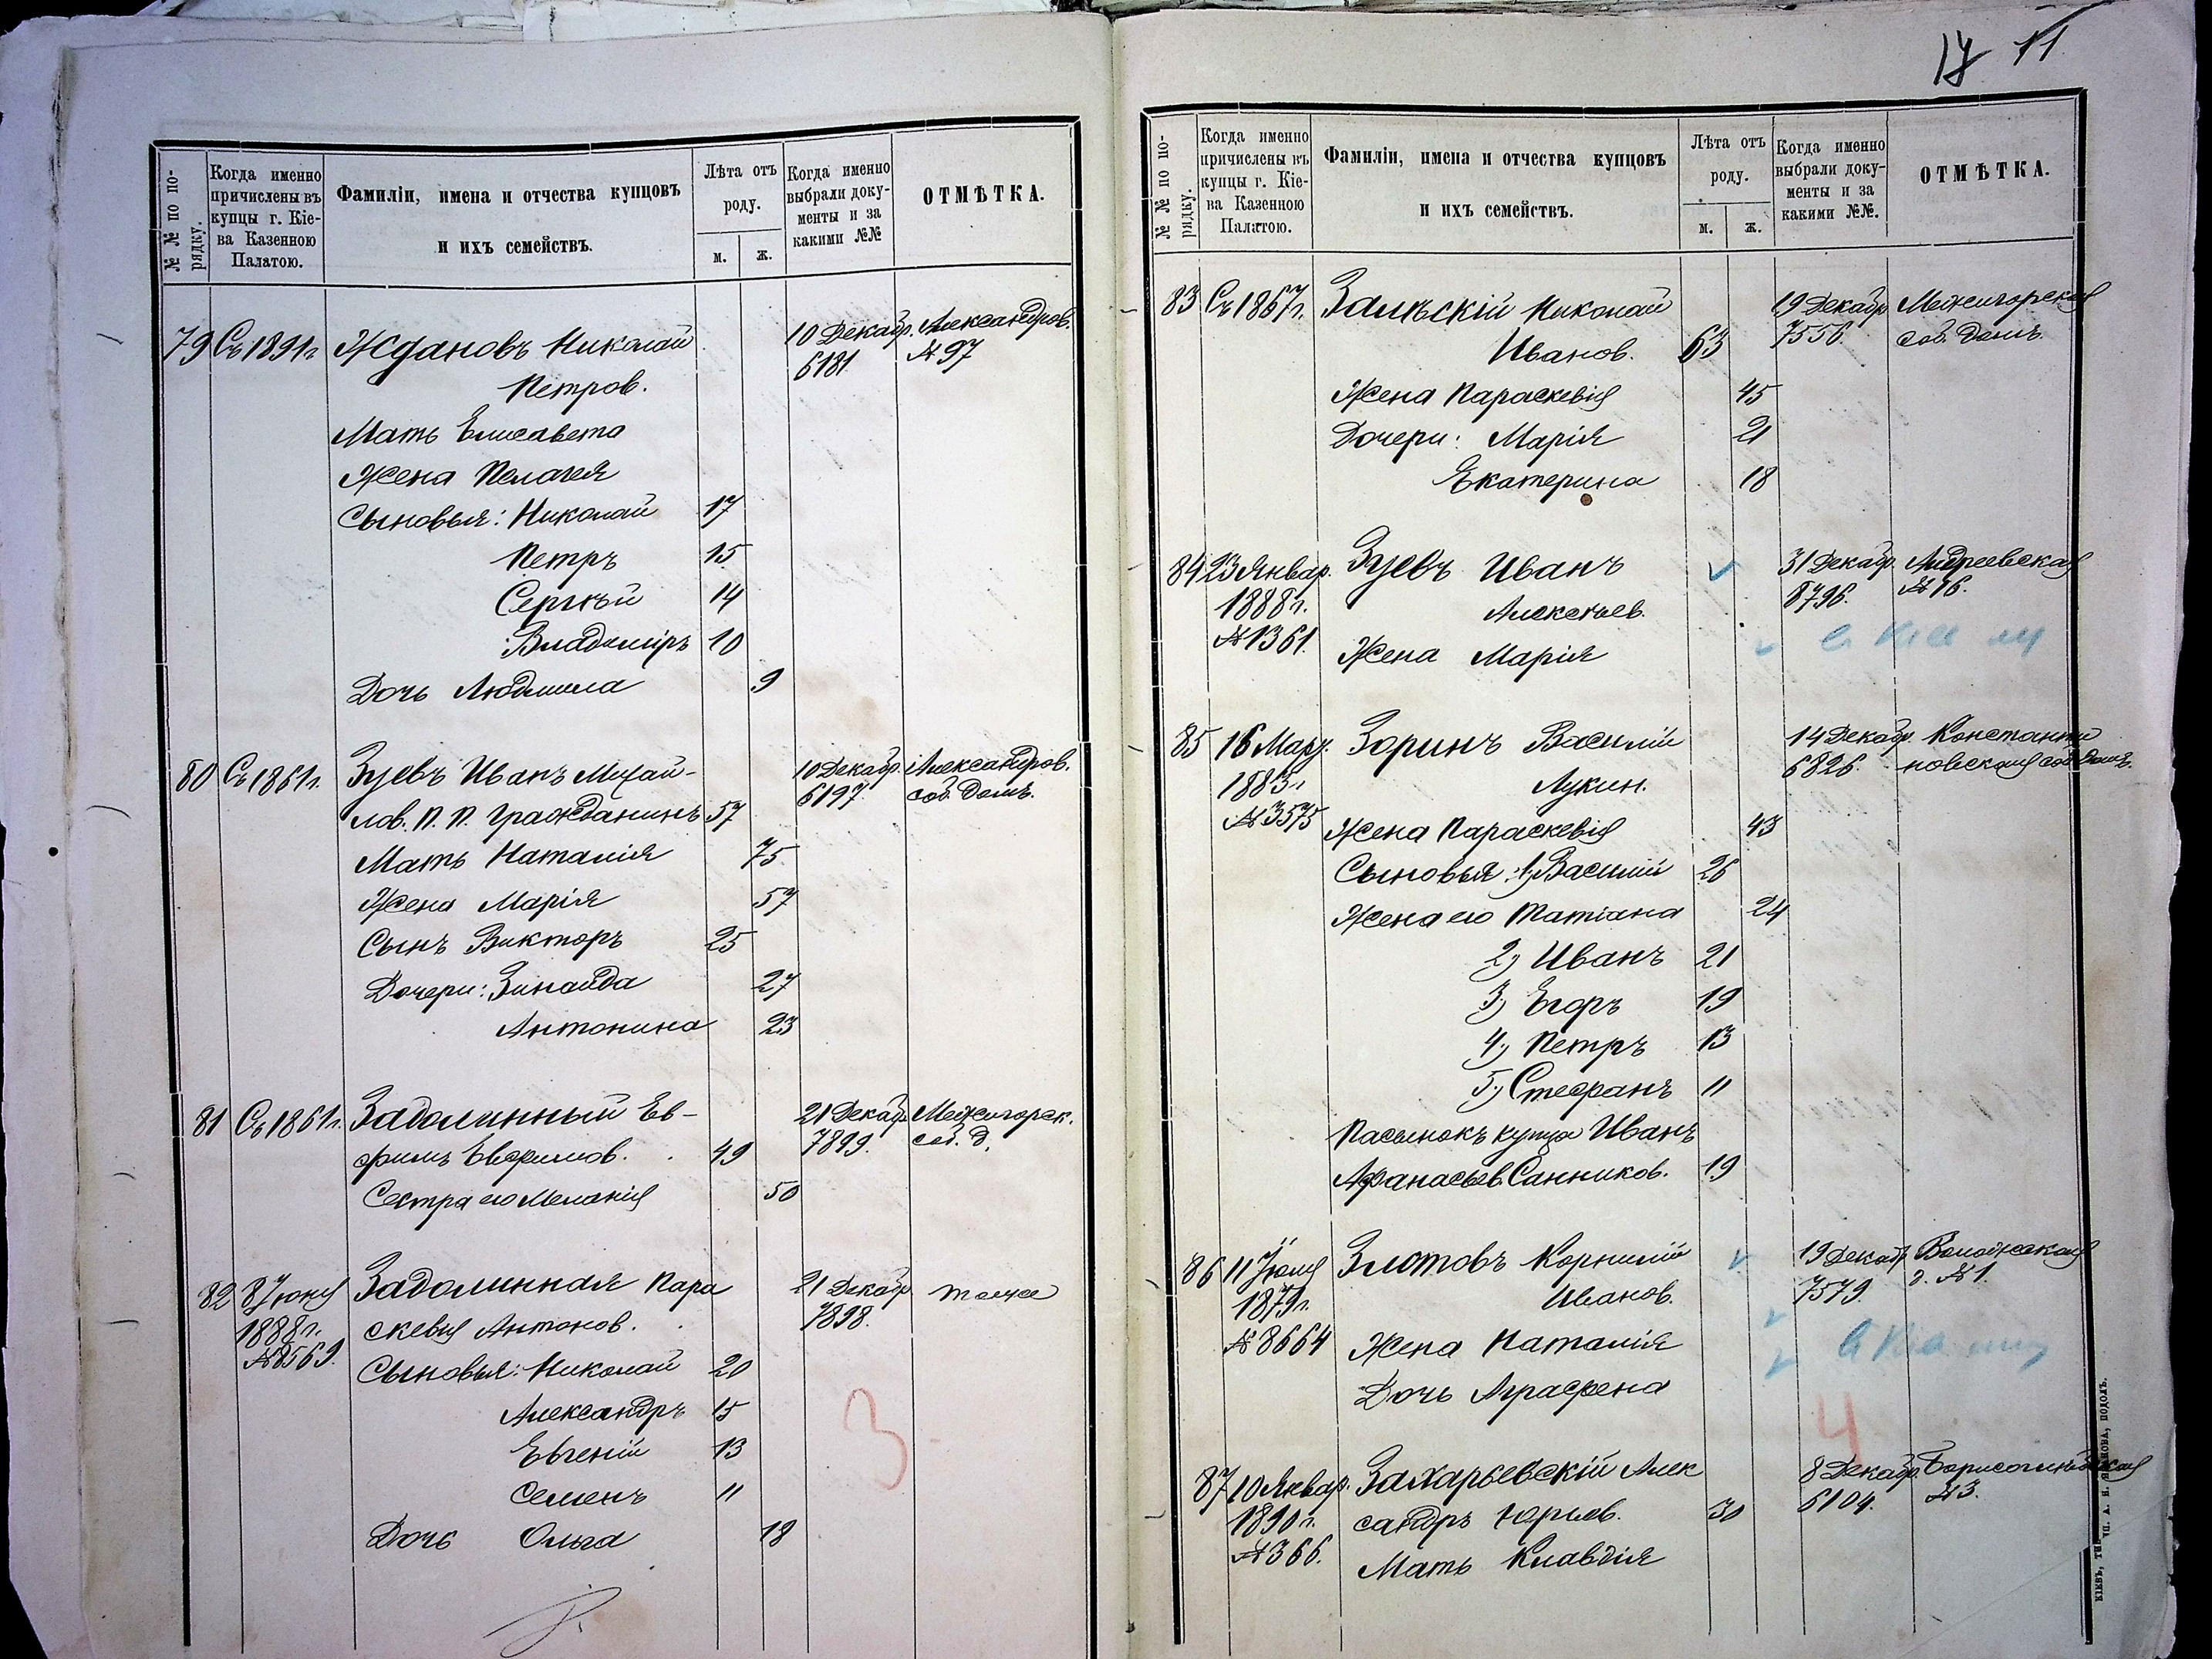 17 11
№ № по по-рядку.
Когда именно причислены въ купцы г. Кіе-ва Казенною Палатою.
Фамиліи, имена и отчества купцовъ и ихъ семействъ.
Лѣта отъ роду.
м. ж.
Когда именно выбрали доку-менты и за какими №№
ОТМѢТКА.
79 Съ 1891 г. Ждановъ Николай 10 Декабр. Александров.
Петров. 6181 № 97
Мать Елисавета
Жена Пелагея
Сыновья: Николай 17
Петръ 15
Сергѣй 14
Владиміръ 10
Дочь Людмила 9
80 Съ 1861 г. Зуевъ Иванъ Михай- 10 Декабр. Александров.
лов. П. П. Гражданинъ 57 6197 соб. домъ.
Мать Наталія 75
Жена Марія 57
Сынъ Викторъ 25
Дочери: Зинаида 27
Антонина 23
81 Съ 1861 г. Задолинный Ев- 21 Декабр. Межигорск.
фимъ Евфимов. 49 7899. соб. д.
Сестра его Меланія 50
82 8 Іюня Задолинная Пара 21 Декабр. тамже
1888 г. скевія Антонов. 7898.
№ 8569. Сыновья: Николай 20
Александръ 15
Евгеній 13
Семенъ 11
Дочь Ольга 18
3
№ № по по-рядку.
Когда именно причислены въ купцы г. Кіе-ва Казенною Палатою.
Фамиліи, имена и отчества купцовъ и ихъ семействъ.
Лѣта отъ роду.
м. ж.
Когда именно выбрали доку-менты и за какими №№.
ОТМѢТКА.
83 Съ 1867 г. Николай 19 Декабр. Межигорская
Иванов. 63 7556. соб. домъ.
Жена Параскевія 45
Дочери: Марія 21
Екатерина 18
84 23 Январ. Зуевъ Иванъ 31 Декабр. Андреевская
1888 г. Алексѣев. 8796. № 16.
№ 1361. Жена Марія
85 16 Мар. Зоринъ Василій 14 Декабр. Константи
1883 г. Лукин. 6826. новская соб. домъ.
№ 3575 Жена Параскевія 43
Сыновья: 1) Василій 26
Жена его Татіана 24
2) Иванъ 21
3) Егоръ 19
4) Петръ 13
5) Стефанъ 11
Пасынокъ купца Иванъ
Афанасьев. Санников. 19
86 11 Іюля Злотовъ Корнилій 19 Декабр.
1879 г. Иванов. 7579. д. № 1.
№ 8664 Жена Наталія
Дочь Аграфена
4
87 10 Январ. Захарьевскій Алек 8 Декабр. Борисоглѣбская
1890 г. сандръ Юрьев. 30 6104. № 3.
№ 366. Мать Клавдія